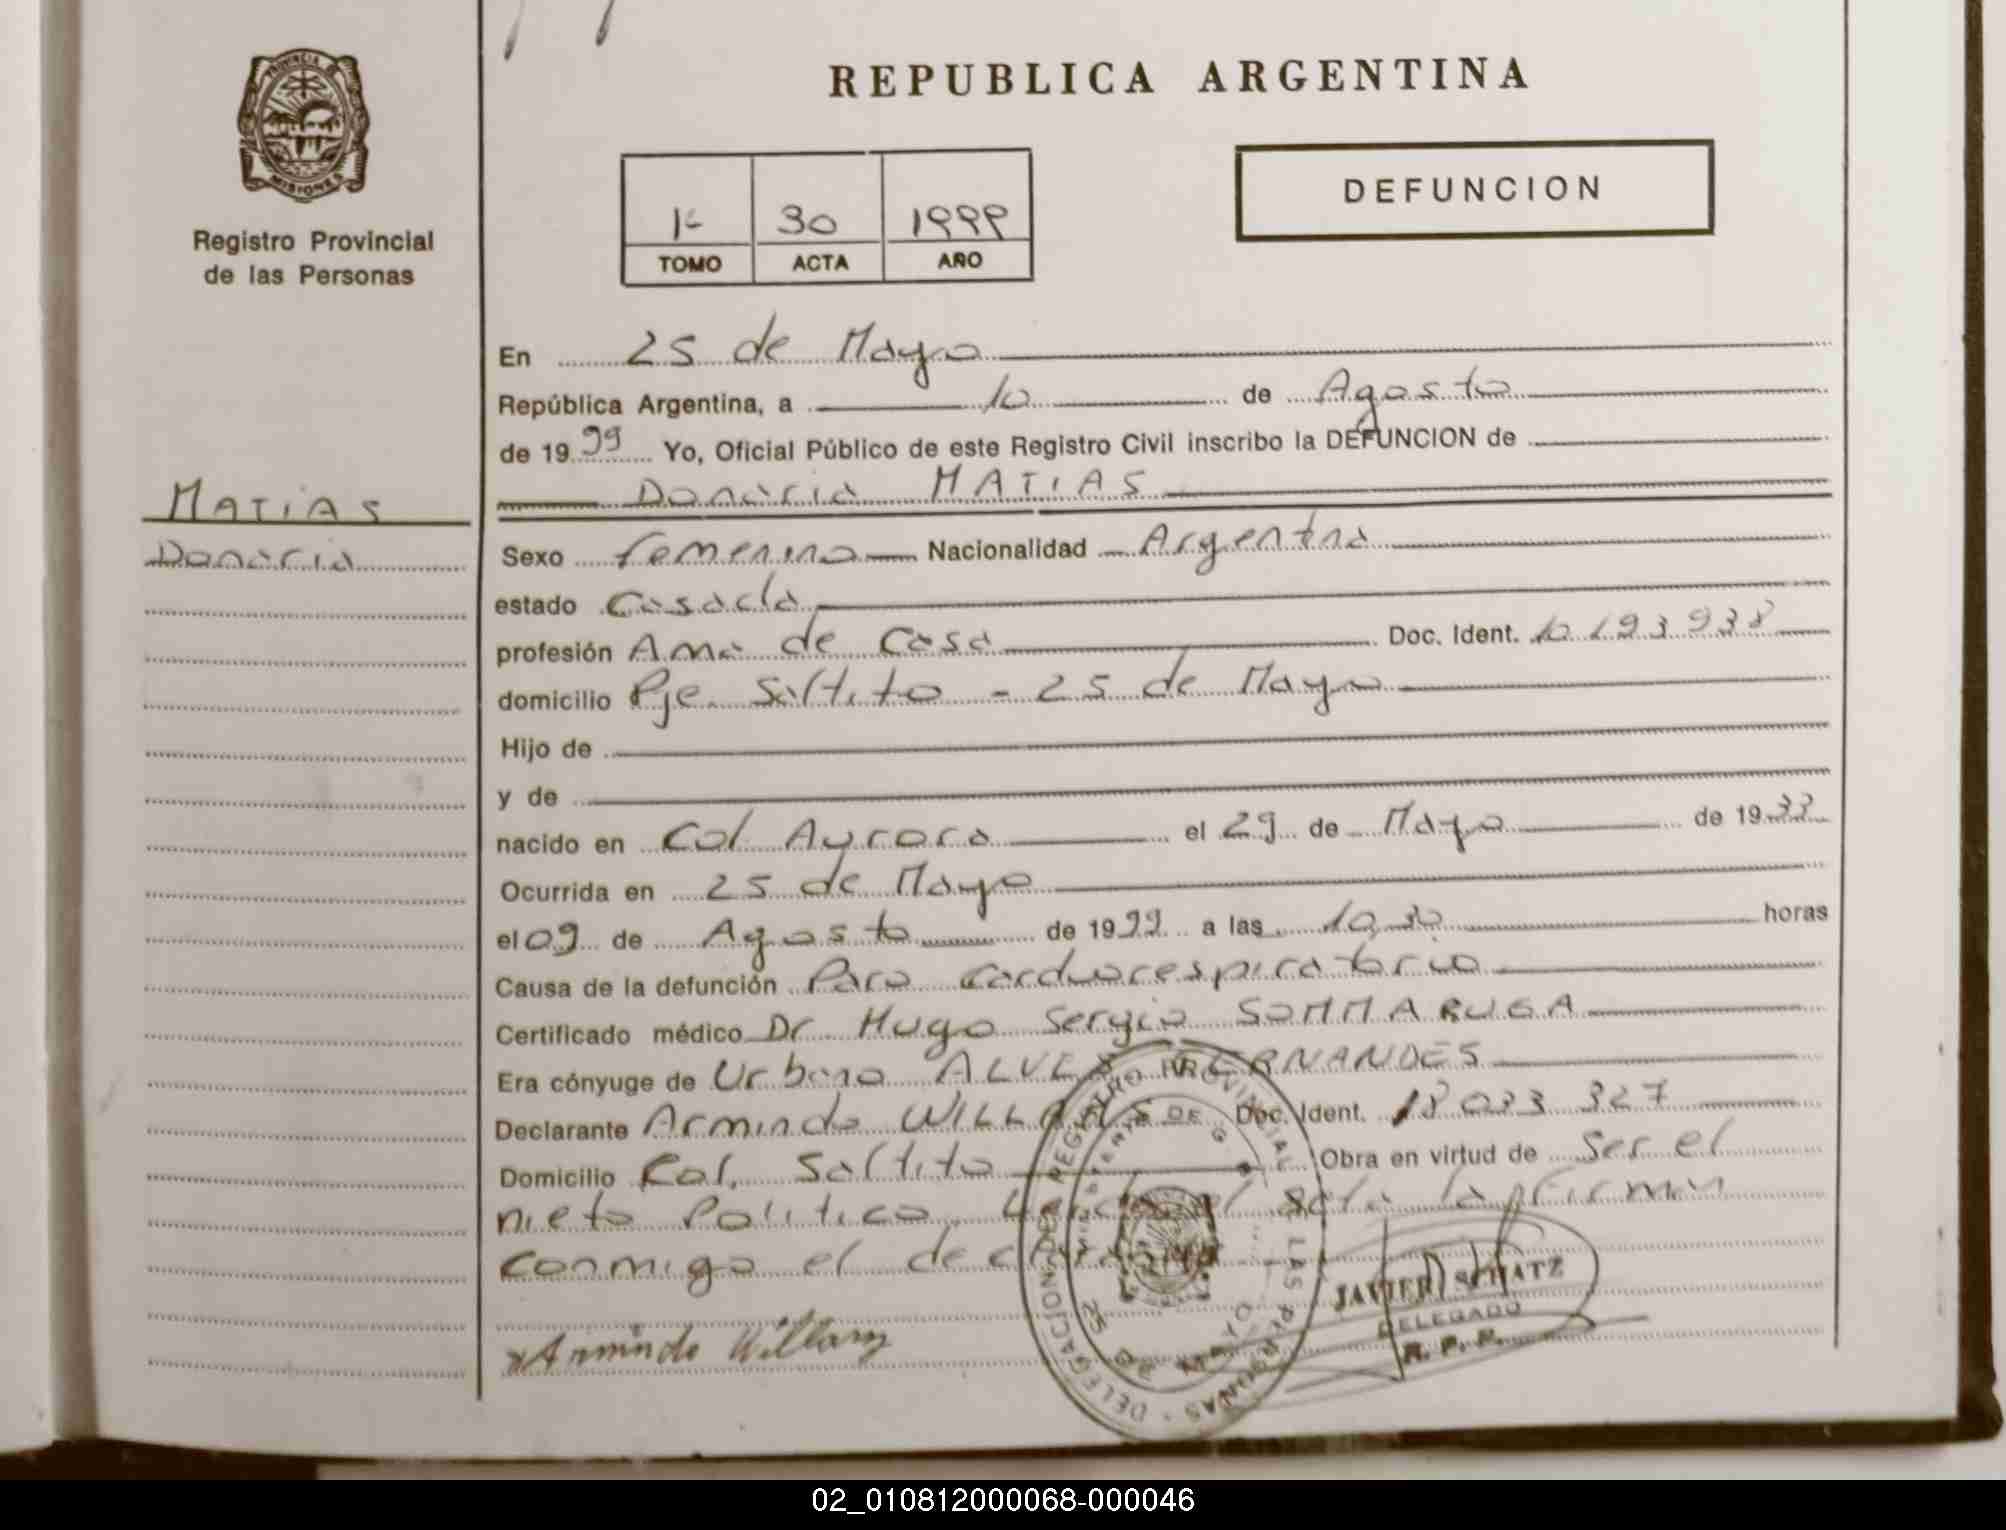 REPUBLICA ARGENTINA
PROVINCIA DE
MISIONES
Registro Provincial
de las Personas
DEFUNCION
30 1999
TOMO ACTA AÑO
En 25 de Mayo
República Argentina, a 10 de Agosto
de 1999 Yo, Oficial Público de este Registro Civil inscribo la DEFUNCION de
Donaria MATIAS
MATIAS
Donaria
Sexo Femenino Nacionalidad Argentina
estado Casada
profesión Ama de Casa Doc. Ident. 10.193.938
domicilio Pje. Saltito - 25 de Mayo
Hijo de
y de
nacido en Col. Aurora el 29 de Mayo de 1933
Ocurrida en 25 de Mayo
el 09 de Agosto de 1999 a las 10,30 horas
Causa de la defunción Paro Cardiorespiratorio
Certificado médico Dr. Hugo Sergio SOMMARUGA
Era cónyuge de Urbano ALVES FERNANDES
Declarante Armindo Doc. Ident. 18.033.327
Domicilio Col. Saltito Obra en virtud de Ser el
nieto Politico. Leida el acta la firma
conmigo el declarante
Armindo
REGISTRO PROVINCIAL DE LAS PERSONAS - DELEGACION
MINISTERIO DE G
25 DE MAYO
JAVIER SCHATZ
DELEGADO
R. P. P.
02_010812000068-000046